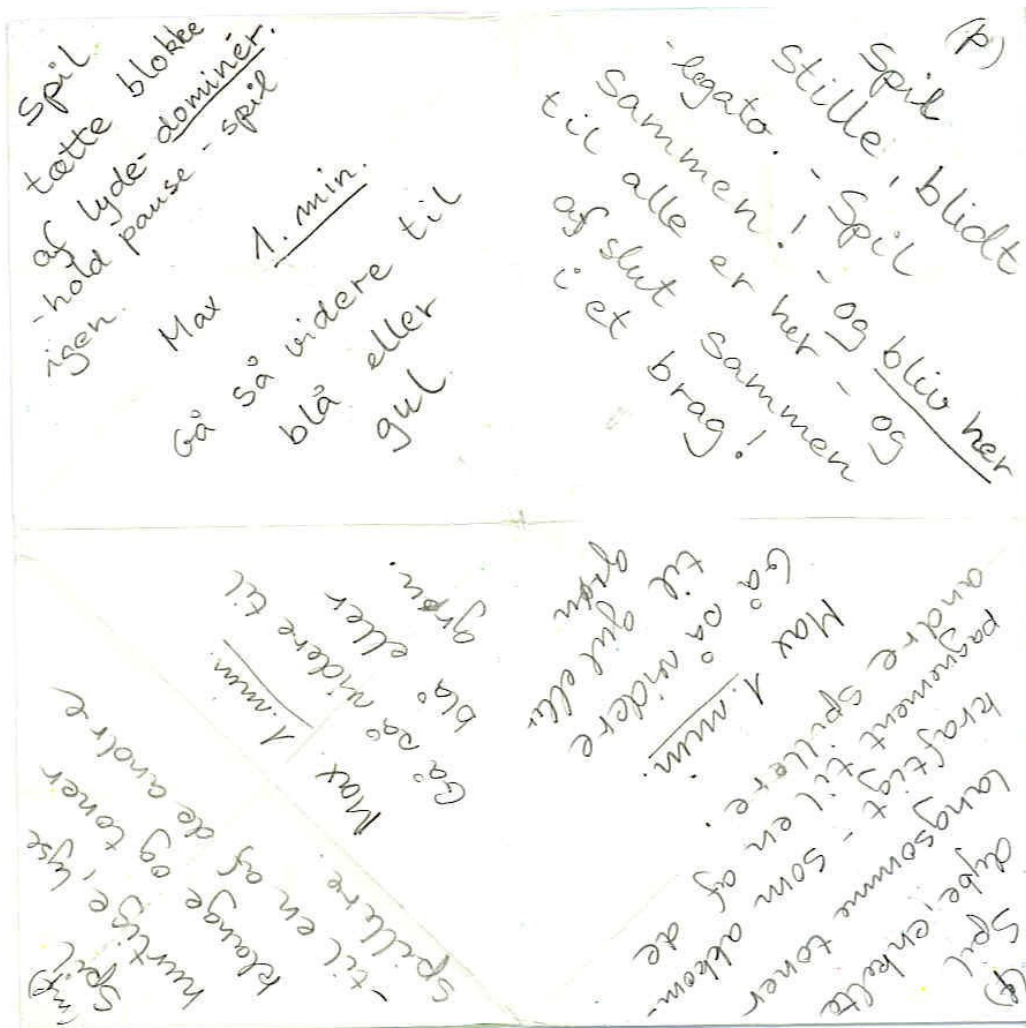 Spil
tætte blokke
af lyde - dominér.
- hold pause - spil
igen.
Max 1. min.
Gå så videre til
blå eller
gul
(p)
Spil
stille, blidt
- legato. - Spil
sammen! - og bliv her
til alle er her - og
afslut sammen
i et brag!
(mf)
Spil
hurtige, lyse
klange og toner
- til en af de andre
spillere
Max 1. min.
Gå så videre til
blå eller
grøn.
Spil
dybe, enkelte
langsomme toner
kraftigt - som akkom-
pagnement til en af de
andre spillere.
Max 1. min.
Gå så videre
til gul eller
grøn